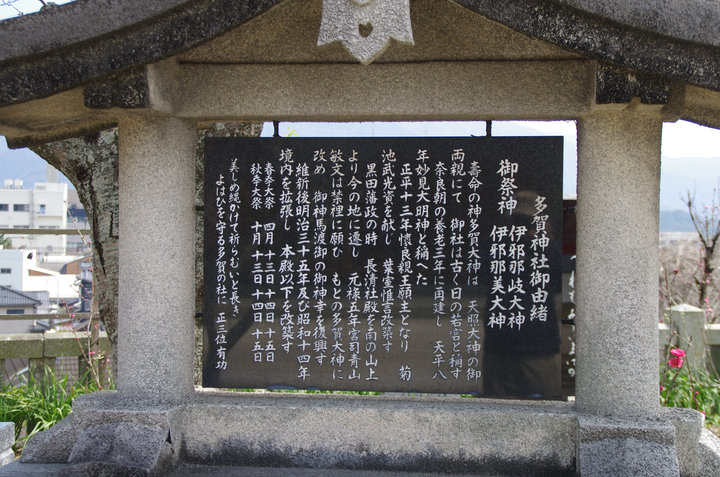 多賀神社御由緒
御祭神 伊邪那岐大神
伊邪那美大神
壽命の神多賀大神は 天照大神の御
両親にて 御社は古く日の若宮と稱す
奈良朝の養老三年に再建し 天平八
年妙見大明神と稱へた
正平十三年懐良親王願主となり 菊
池武光資を献し 葉室惟言改築す
黒田藩政の時 長清社殿を南の山上
より今の地に遷し 元禄五年宮司青山
敏文は禁裡に願ひ もとの多賀大神に
改め 御神馬渡御の御神幸を復興す
維新後明治三十五年及び昭和十四年
境内を拡張し 本殿以下を改築す
春季大祭 四月十三日十四日十五日
秋季大祭 十月十三日十四日十五日
美しめ縄かけて祈らむいと長き
よはひを守る多賀の社に 正三位有功